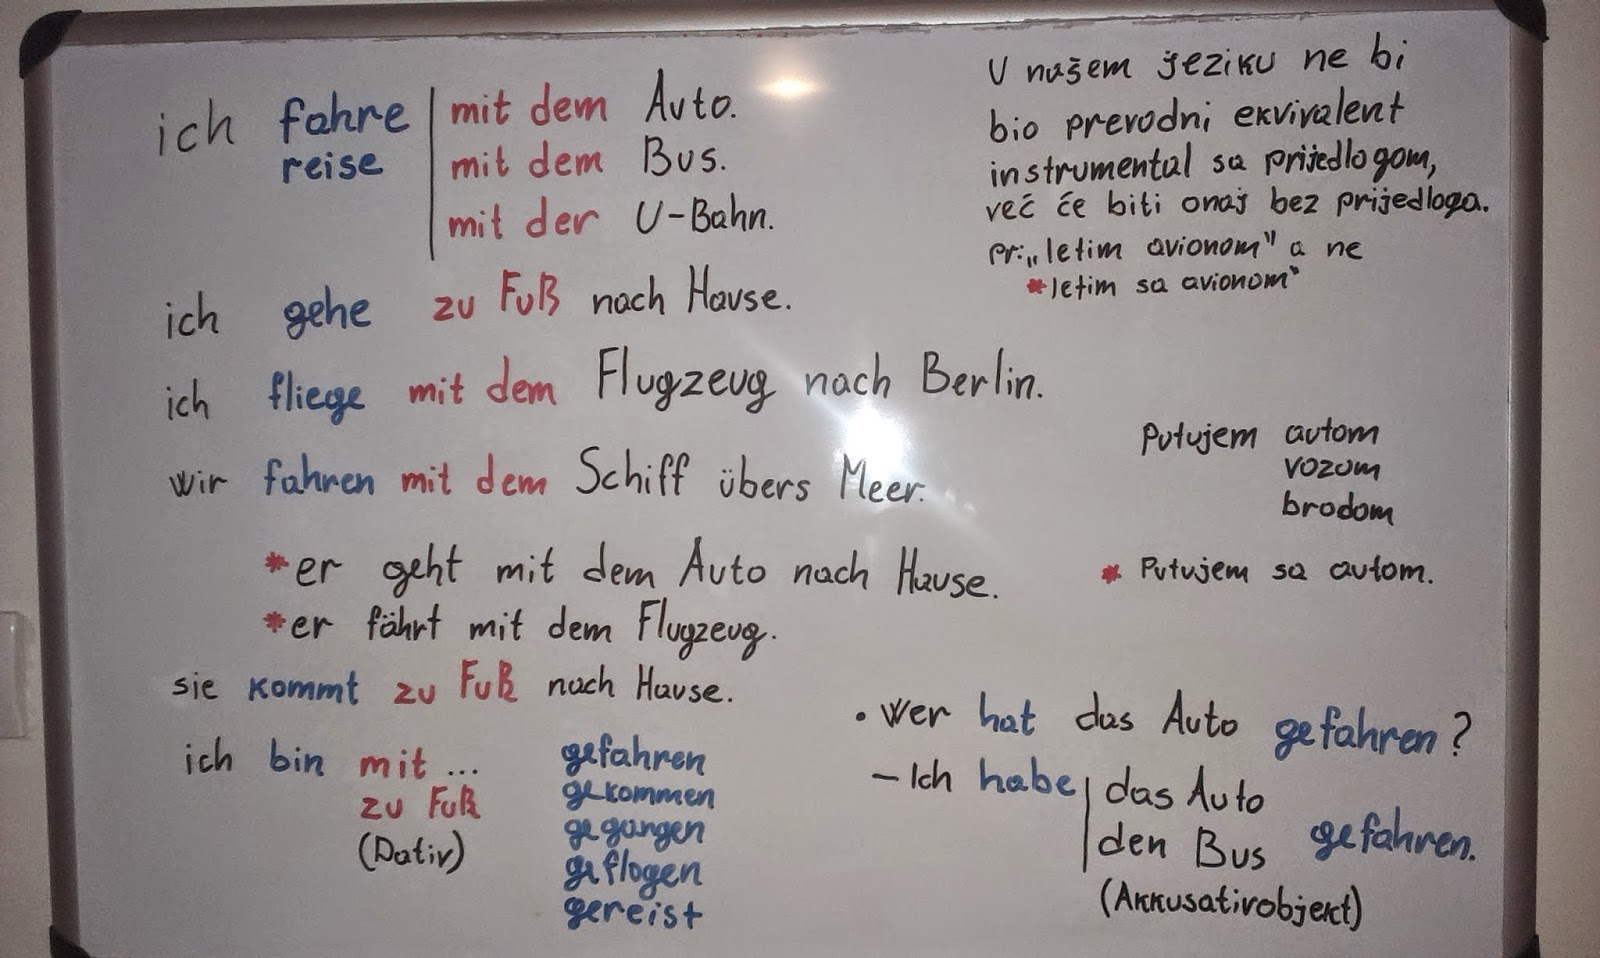 ich fahre mit dem Auto.
reise mit dem Bus.
mit der U-Bahn.
ich gehe zu Fuß nach Hause.
ich fliege mit dem Flugzeug nach Berlin.
wir fahren mit dem Schiff übers Meer.
*er geht mit dem Auto nach Hause.
*er fährt mit dem Flugzeug.
sie kommt zu Fuß nach Hause.
ich bin mit... gefahren
zu Fuß gekommen
(Dativ) gegangen
geflogen
gereist
U našem jeziku ne bi
bio prevodni ekvivalent
instrumental sa prijedlogom,
već će biti onaj bez prijedloga.
pr: „letim avionom" a ne
*letim sa avionom"
Putujem autom
vozom
brodom
* Putujem sa autom.
• Wer hat das Auto gefahren?
– Ich habe das Auto
den Bus gefahren.
(Akkusativobjekt)